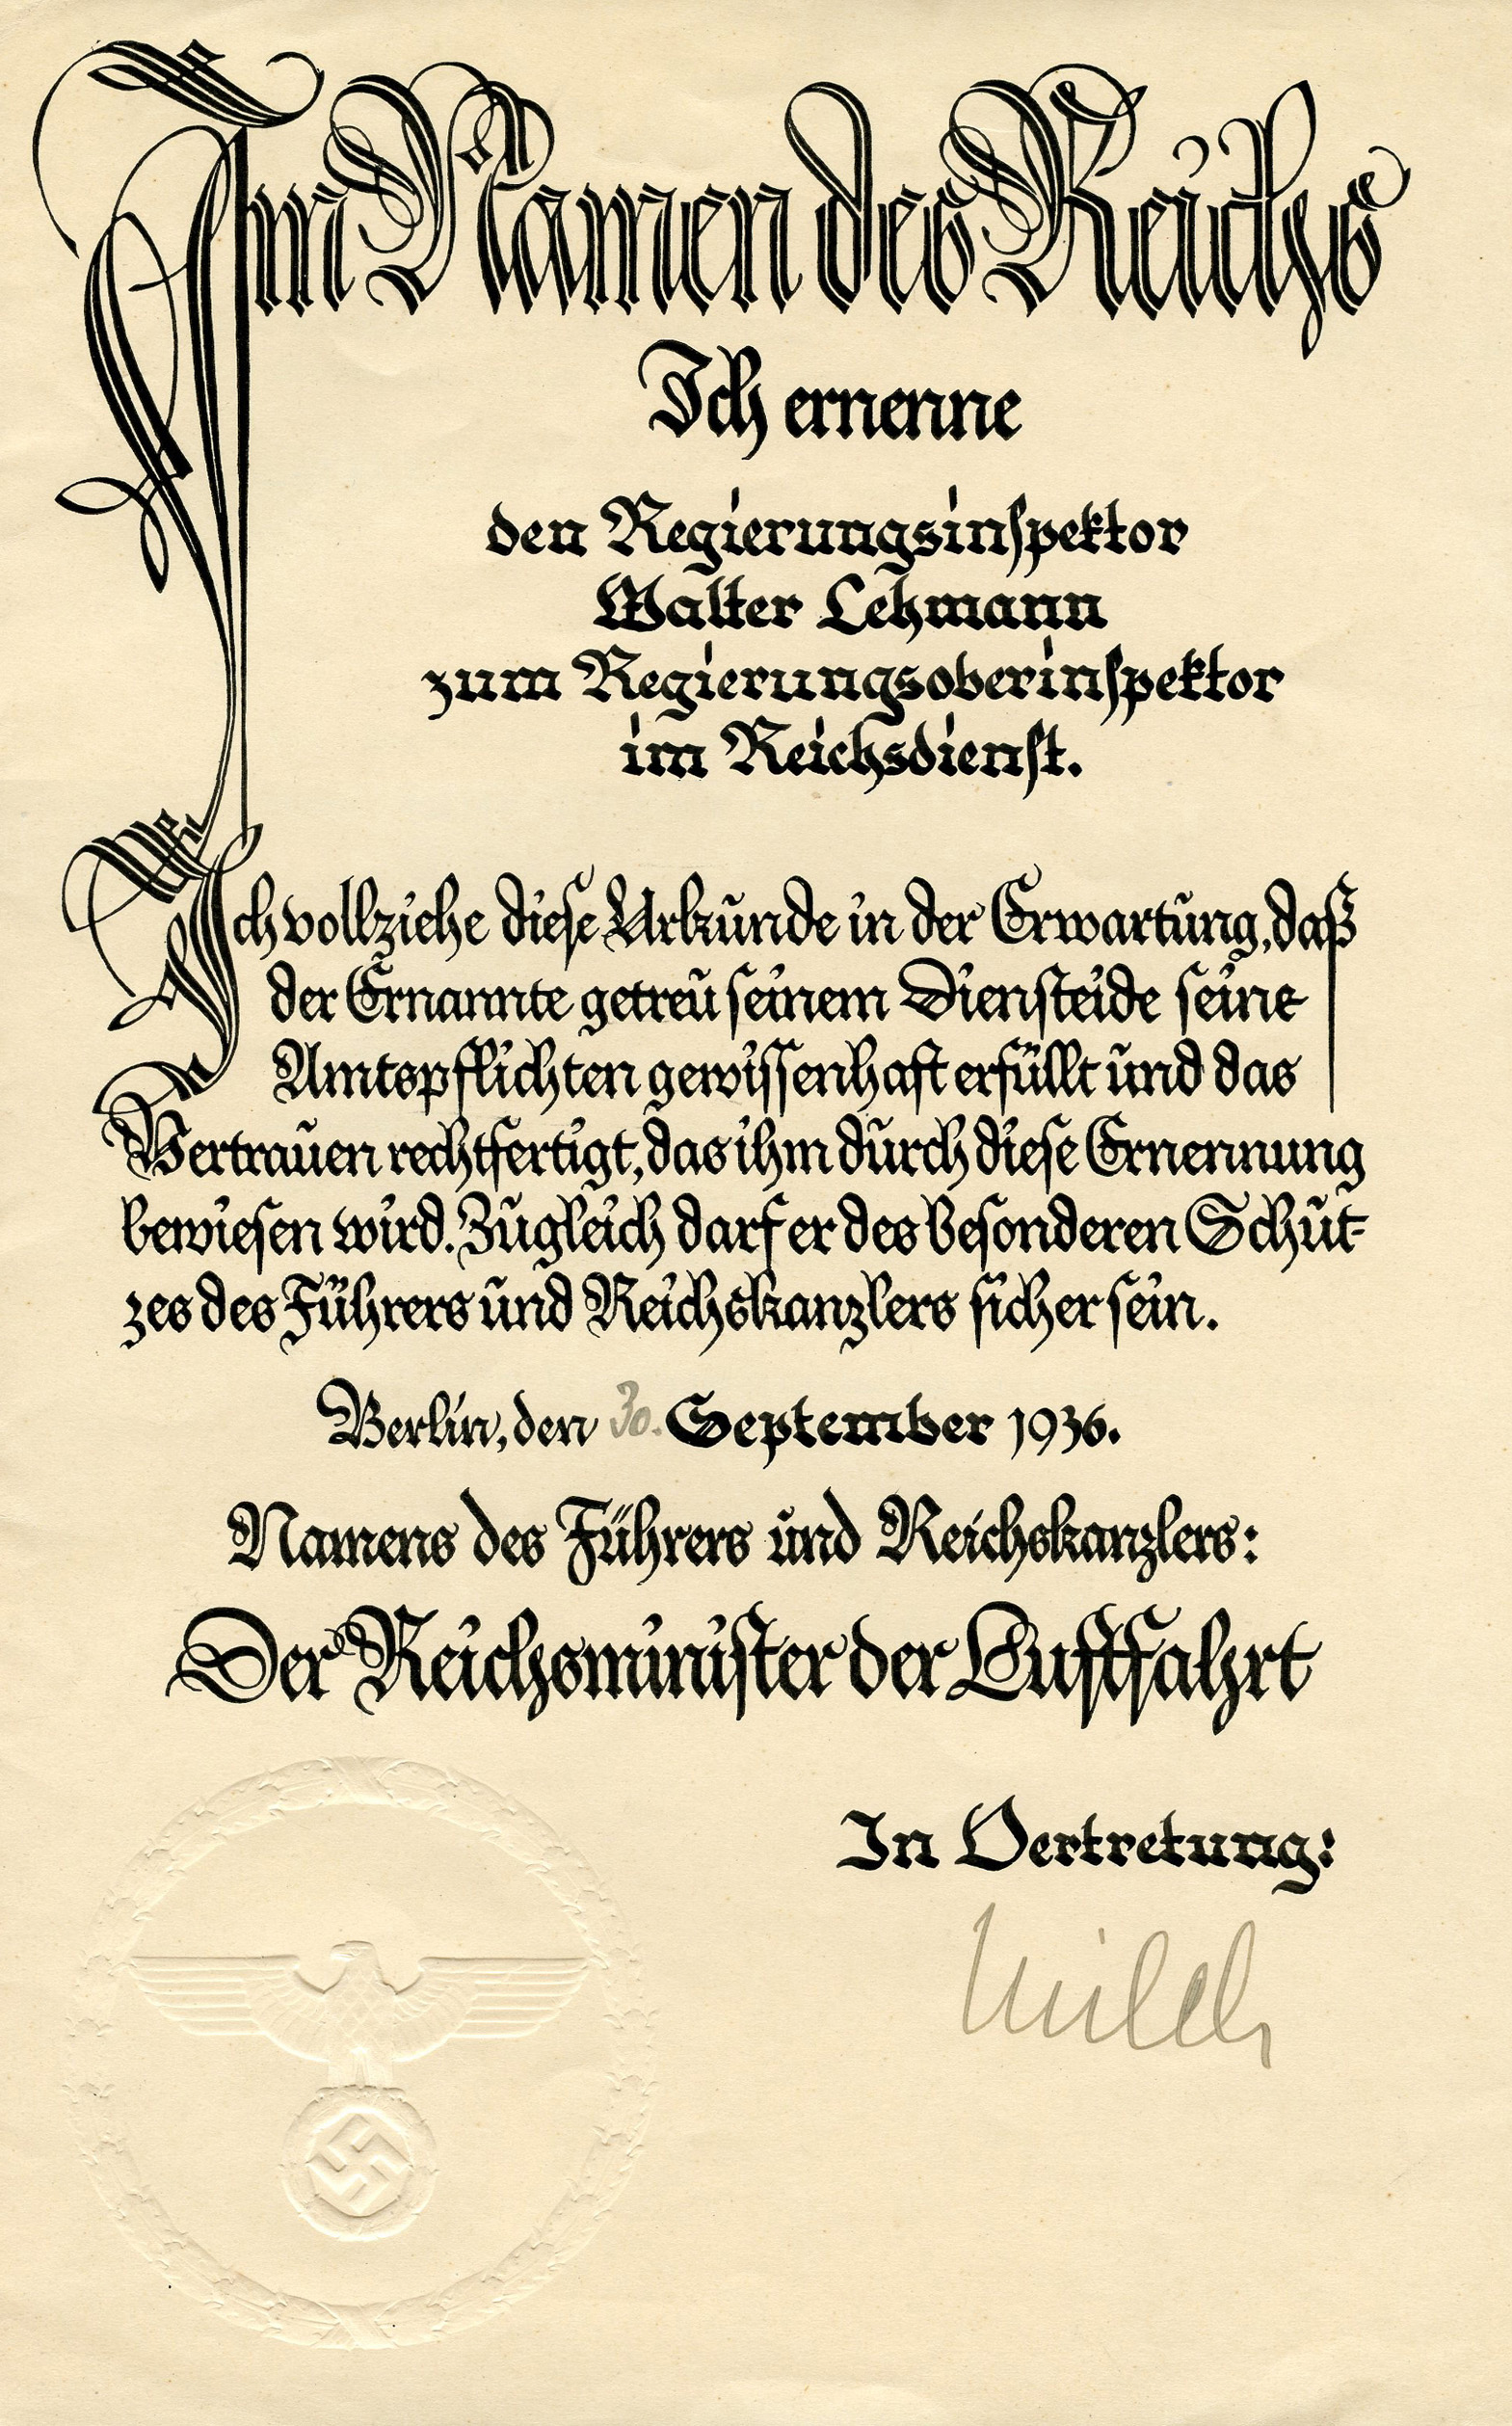 Im Namen des Reichs
Ich ernenne
den Regierungsinspektor
Walter Lehmann
zum Regierungsoberinspektor
im Reichsdienst.
Ich vollziehe diese Urkunde in der Erwartung, daß
der Ernannte getreu seinem Diensteide seine
Amtspflichten gewissenhaft erfüllt und das
Vertrauen rechtfertigt, das ihm durch diese Ernennung
bewiesen wird. Zugleich darf er des besonderen Schut-
zes des Führers und Reichskanzlers sicher sein.
Berlin, den 30. September 1936.
Namens des Führers und Reichskanzlers:
Der Reichsminister der Luftfahrt
In Vertretung:
Milch